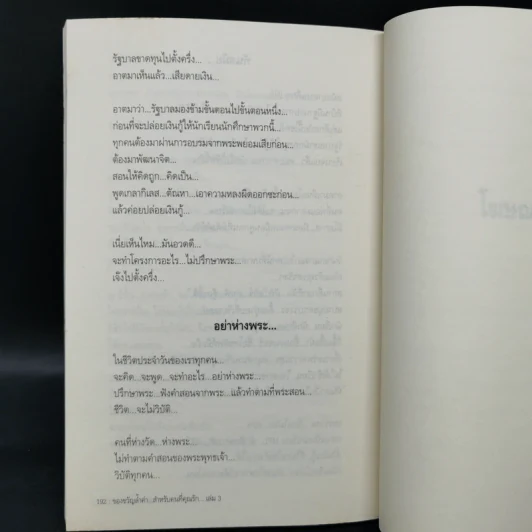 รัฐบาลขาดทุนไปตั้งครึ่ง...
อาตมาเห็นแล้ว...เสียดายเงิน...
อาตมาว่า...รัฐบาลมองข้ามขั้นตอนไปขั้นตอนหนึ่ง...
ก่อนที่จะปล่อยเงินกู้ให้นักเรียนนักศึกษาพวกนี้...
ทุกคนต้องมาผ่านการอบรมจากพระพยอมเสียก่อน...
ต้องมาพัฒนาจิต...
สอนให้คิดถูก...คิดเป็น...
พูดเกลากิเลส...ตัณหา...เอาความหลงผิดออกซะก่อน...
แล้วค่อยปล่อยเงินกู้...
เนี่ยเห็นไหม...มันอวดดี...
จะทำโครงการอะไร...ไม่ปรึกษาพระ...
เจ๊งไปตั้งครึ่ง...
อย่าห่างพระ...
ในชีวิตประจำวันของเราทุกคน...
จะคิด...จะพูด...จะทำอะไร...อย่าห่างพระ...
ปรึกษาพระ...ฟังคำสอนจากพระ...แล้วทำตามที่พระสอน...
ชีวิต...จะไม่วิบัติ...
คนที่ห่างวัด...ห่างพระ...
ไม่ทำตามคำสอนของพระพุทธเจ้า...
วิบัติทุกคน...
192 : ของขวัญล้ำค่า...สำหรับคนที่คุณรัก...เล่ม 3